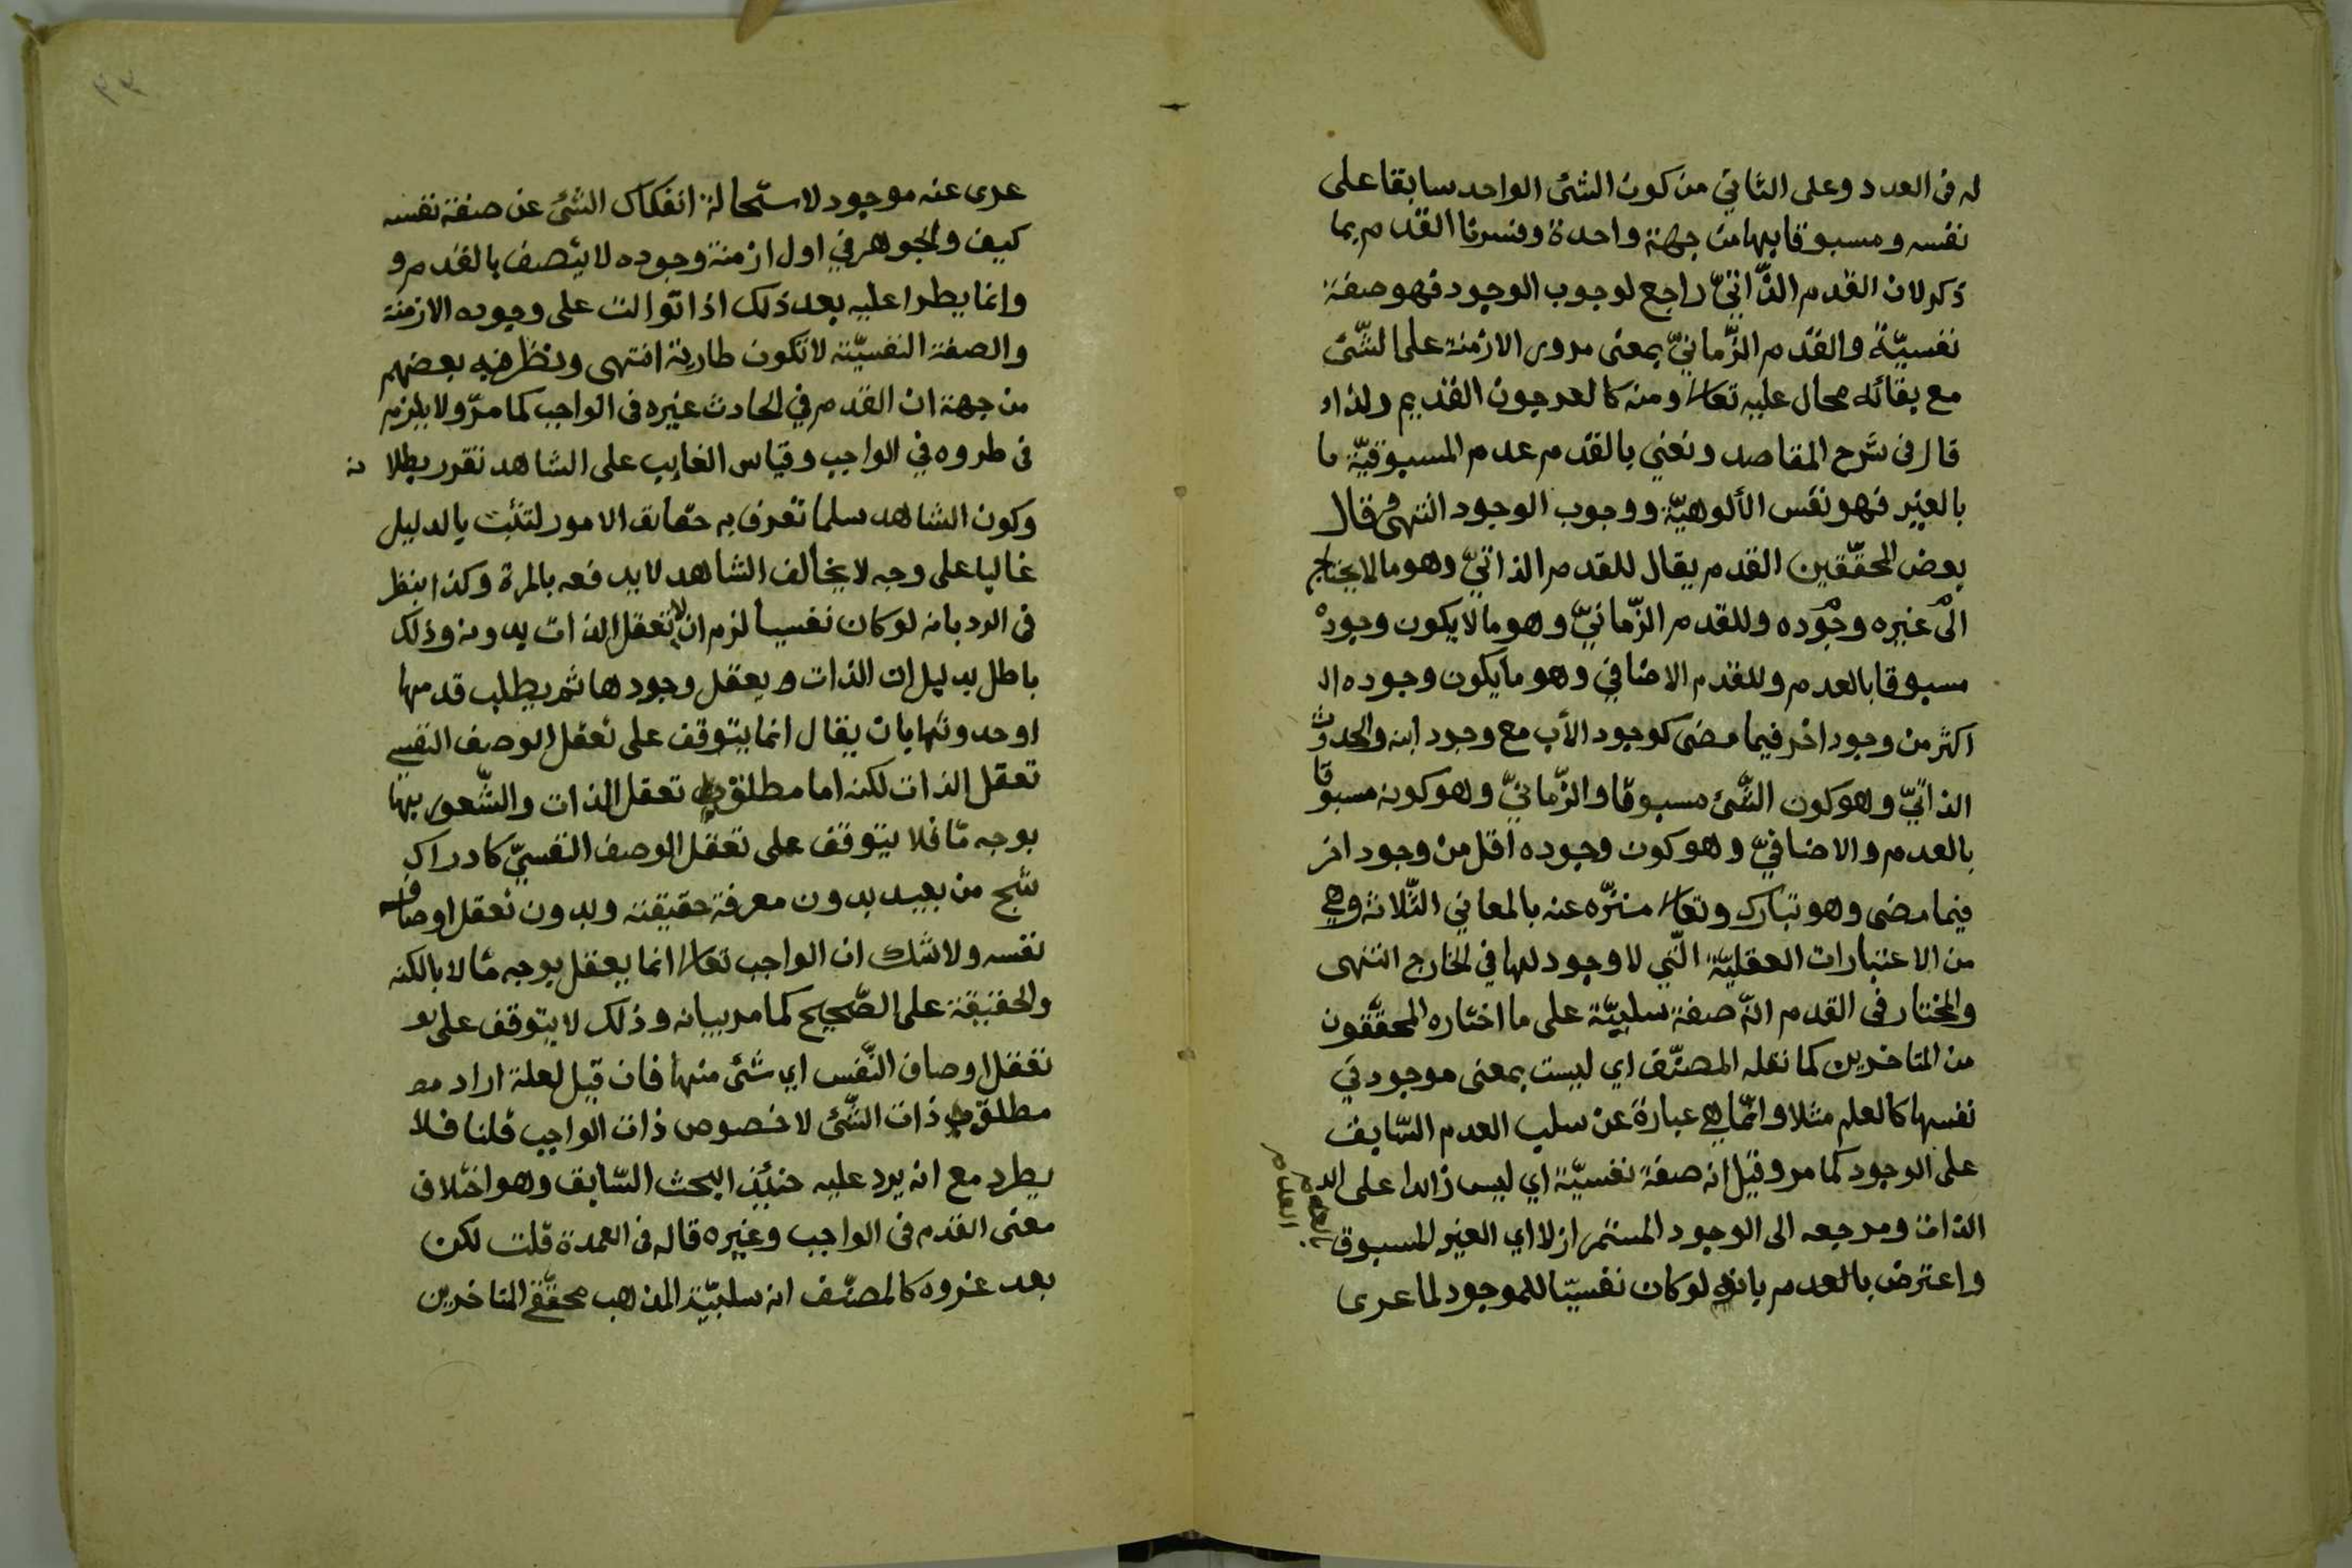 له فى العدد وعلى الثاني من كون الشئ الواحد سابقا على
نفسه ومسبوقا بها من جهة واحدة وفسرنا القدم بما
ذكر لان القدم الذّاتيّ راجع لوجوب الوجود فهو صفة
نفسيّة والقدم الزّمانيّ بمعنى مرور الازمنة على الشّئ
مع بقائه محال عليه تعالى ومنه كالعرجون القديم ولذا
قال فى شرح المقاصد ونعني بالقدم عدم المسبوقيّة
بالغير فهو نفس الألوهيّة ووجوب الوجود انتهى وقال
بعض المحقّقين القدم يقال للقدم الذاتيّ وهو ما لا يحتاج
الى غيره وجوده وللقدم الزّمانيّ وهو ما لا يكون وجوده
مسبوقا بالعدم وللقدم الاضافي وهو ما يكون وجوده
اكثر من وجود اخر فيما مضى كوجود الأب مع وجود ابنه والحدوث
الذاتيّ وهو كون الشّئ مسبوقا والزّمانيّ وهو كونه مسبوقا
بالعدم والاضافيّ وهو كون وجوده اقل من وجود اخر
فيما مضى وهو تبارك وتعالى منزّه عنه بالمعاني الثّلاثة وهي
من الاعتبارات العقليّة الّتي لا وجود لها في الخارج انتهى
والمختار فى القدم انّه صفة سلبيّة على ما اختاره المحقّقون
من المتاخرين كما نقله المصنّف اي ليست بمعنى موجود في
نفسها كالعلم مثلا وانّما هي عبارة عن سلب العدم السّابق
على الوجود كما مر وقيل انه صفة نفسيّة اي ليس زائدا على الد
الذات ومرجعه الى الوجود المستمر ازلا اي الغير المسبوق
بالعدم
العدم
واعترض بالعدم بانه لو كان نفسيّا للموجود لما عرى
عرى عنه موجود لاستحالة انفكاك الشئ عن صفة نفسه
كيف والجوهر في اول ازمنة وجوده لا يتصف بالقدم و
وانما يطرا عليه بعد ذلك اذا توالت على وجوده الازمنة
والصفة النفسيّة لا تكون طارية انتهى ونظر فيه بعضهم
من جهة ان القدم في الحادث غيره فى الواجب كما مرّ ولا يلزم
فى طروه في الواجب وقياس الغايب على الشاهد تقرر بطلا نه
وكون الشاهد سلما تعرف به حقايق الامور لتثبت بالدليل
غالبا على وجه لا يخالف الشاهد لا يدفعه بالمرة وكذا ينظر
فى الرد بانه لو كان نفسيا لزم ان لا تعقل الذات بدونه وذلك
باطل بدليل ان الذات و يعقل وجودها ثم يطلب قدمها
او حدوثها بان يقال انما يتوقف على تعقل الوصف النفسي
تعقل الذات لكنه اما مطلق تعقل الذات والشّعور بها
بوجه مّا فلا يتوقف على تعقل الوصف النفسيّ كادراك
شبح من بعيد بدون معرفة حقيقته وبدون تعقل اوصاف
نفسه ولا شك ان الواجب تعالى انما يعقل بوجه مّا لا بالكنه
والحقيقة على الصّحيح كما مر بيانه وذلك لا يتوقف على
تعقل اوصاف النّفس اي شئ منها فان قيل لعلة اراد
مطلق ذات الشّئ لا خصوص ذات الواجب قلنا فلا
يطرد مع انه يرد عليه حنئذ البحث السّابق وهو اختلاف
معنى القدم فى الواجب وغيره قاله فى العمدة قلت لكن
بعد عزوه كالمصنّف انه سلبيّة المذهب محقّقي المتاخرين